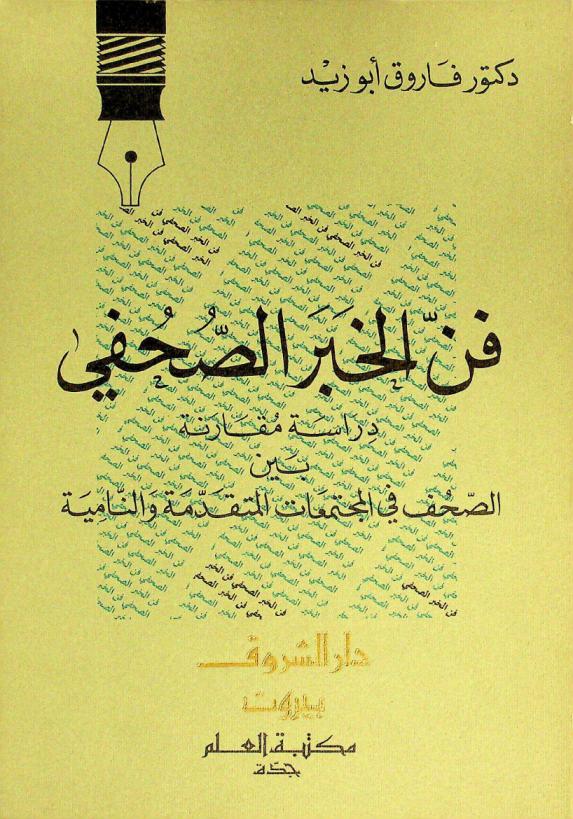 دكتور فاروق أبو زيد
فنّ الخبَر الصّحُفي
دراسَة مُقارنة
بَين
الصّحُف في المجتمعات المتقدّمة والنّامِيَة
دار الشروق
بيروت
مكتبة العلم
جدّة